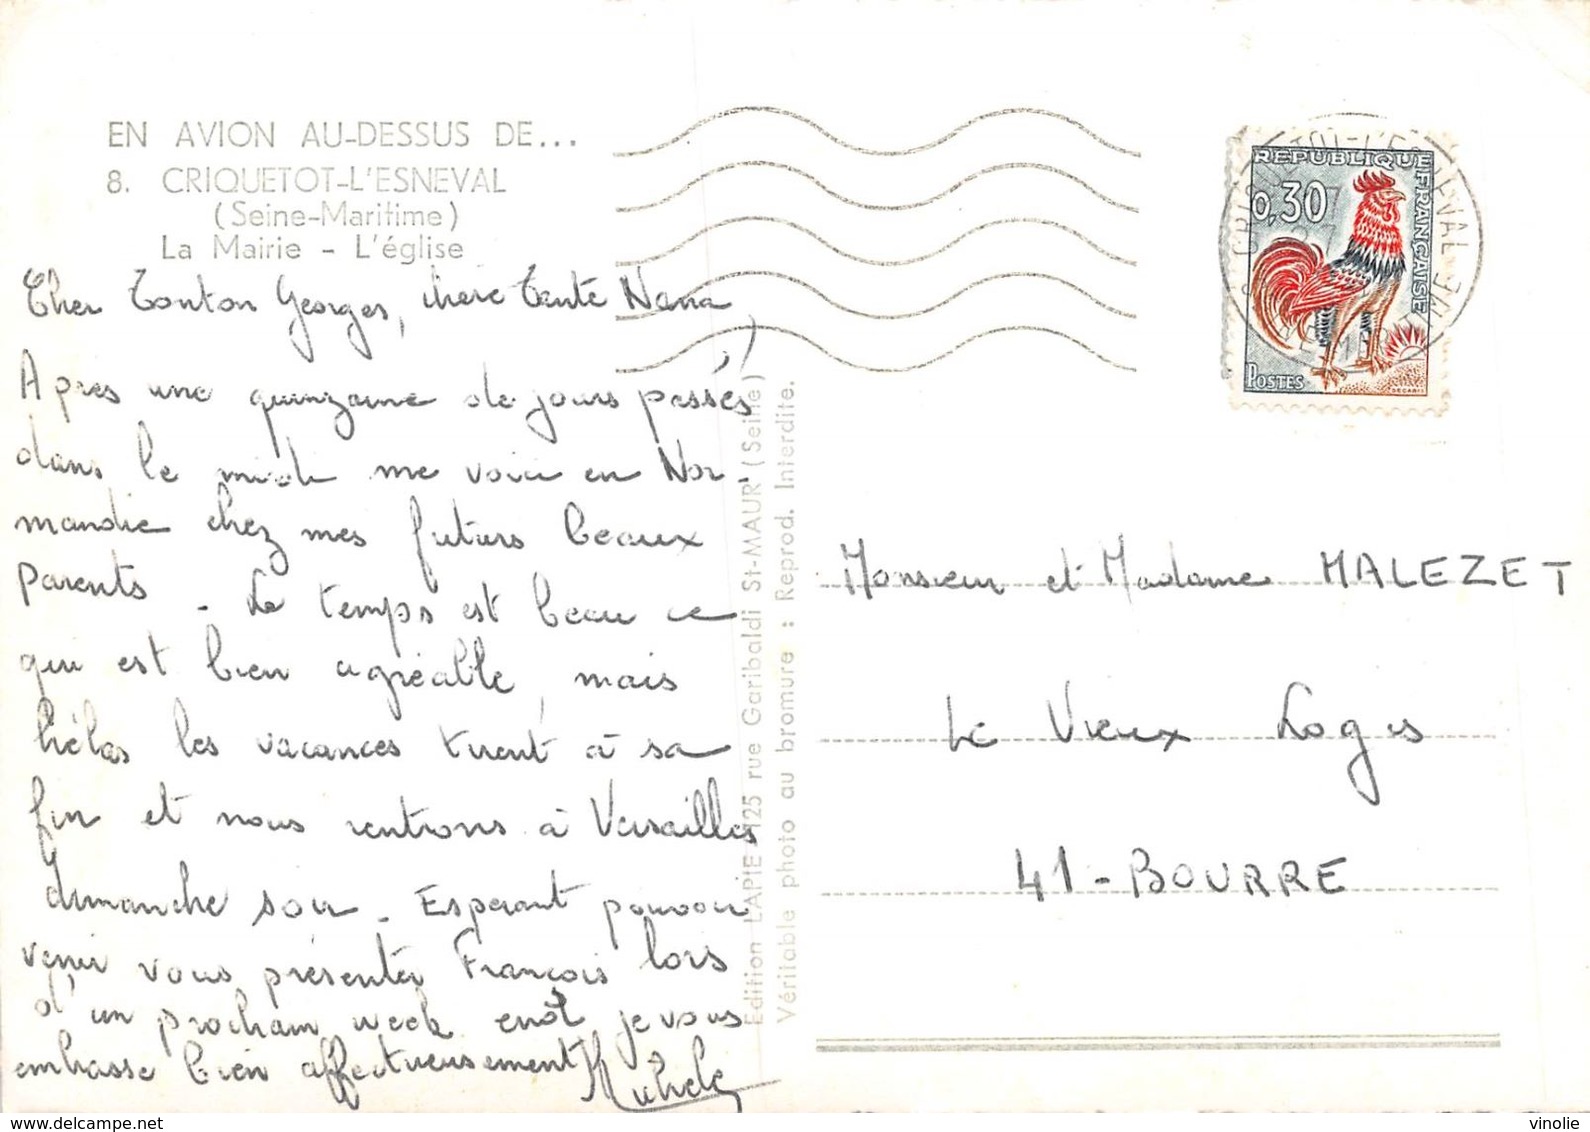 EN AVION AU-DESSUS DE...
8. CRIQUETOT-L'ESNEVAL
(Seine-Maritime)
La Mairie - L'église
Cher Tonton Georges, chère Tante Nana,
Après une quinzaine de jours passés
dans le midi me voici en Nor-
mandie chez mes futurs beaux
parents - Le temps est beau ce
qui est bien agréable, mais
hélas les vacances tirent à sa
fin et nous rentrons à Versailles
dimanche soir - Espérant pouvoir
venir vous présenter François lors
d'un prochain week end je vous
embrasse bien affectueusement
Michèle
Edition LAPIE 125 rue Garibaldi St-MAUR (Seine)
Véritable photo au bromure : Reprod. Interdite.
REPUBLIQUE FRANÇAISE
0,30
POSTES
Monsieur et Madame MALEZET
Le Vieux Logis
41 - BOURRE
Delcampe.net
vinolie